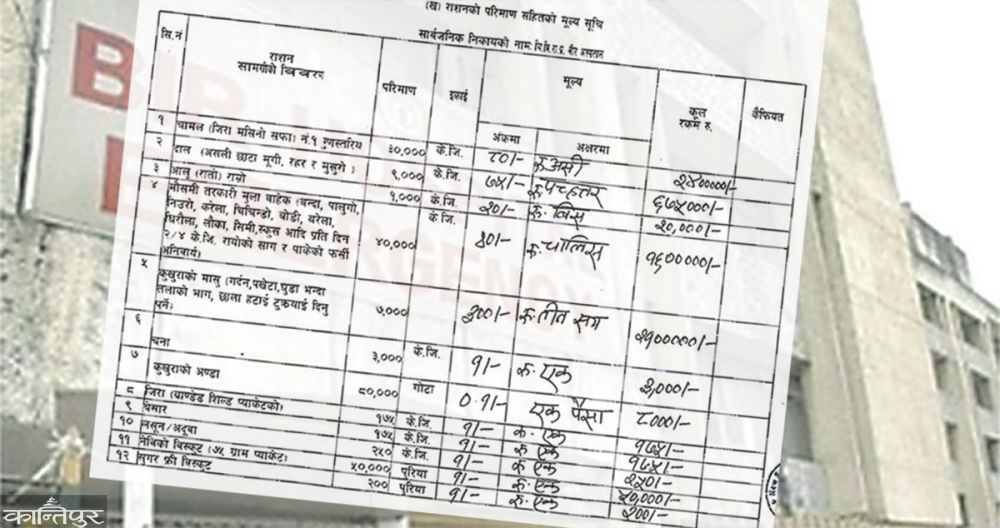 (ख) राशनको परिमाण सहितको मूल्य सूचि
सार्वजनिक निकायको नाम: वीर अस्पताल
सि.नं राशन सामग्रीको विवरण परिमाण इकाई मूल्य कूल रकम रु. कैफियत
अंकमा अक्षरमा
१ चामल (जिरा मसिनो सफा) नं.१ गुणस्तरिय ३०,००० के.जि. ८०।- रु असी २४०००००।-
२ दाल (असली छाटा मूगी, रहर र मुसुरो) ९,००० के.जि. ७५।- रु. पच्हत्तर ६७५०००।-
३ आलु (रातो) राम्रो १,००० के.जि. २०।- रु. बिस २०,०००।-
४ मौसमी तरकारी मुला बाहेक (बन्दा, पालुगो,
निउरो, करेला, चिचिन्डो, बोडी, बरेला,
घिरौला, लौका, सिमी, स्कुस आदि प्रति दिन
२/४ के.जि. रायोको साग र पाकेको फर्सी
अनिवार्य) ४०,००० के जि. ४०।- रु. चालिस १६०००००।-
५ कुखुराको मासु (गर्दन, पखेटा, घुडा भन्दा
तलाको भाग, छाला हटाई टुक्रयाई दिनु
पर्ने) ७,००० ३००।- रु. तीन सय २१०००००।-
६ चना ३,००० के.जि. १।- रु. एक ३,०००।-
७ कुखुराको अण्डा ८०,००० गोटा ०.१।- एक पैसा ८०००।-
८ जिरा (ब्राण्डेड शिल्ड प्याकेटको) १७५ के.जि. १।- रु. एक १७५।-
९ बेसार १७५ के.जि. १।- रु एक १७५।-
१० लसुन/अदुवा २५० के.जि. १।- रु एक २५०।-
११ नेविको बिस्कुट (७५ ग्राम प्याकेट) ५०,००० पुरिया १।- रु एक ५०,०००।-
१२ सुगर फ्री बिस्कुट २०० पुरिया १।- रु. एक २००।-
BIR
EMERGENCY
कान्तिपुर